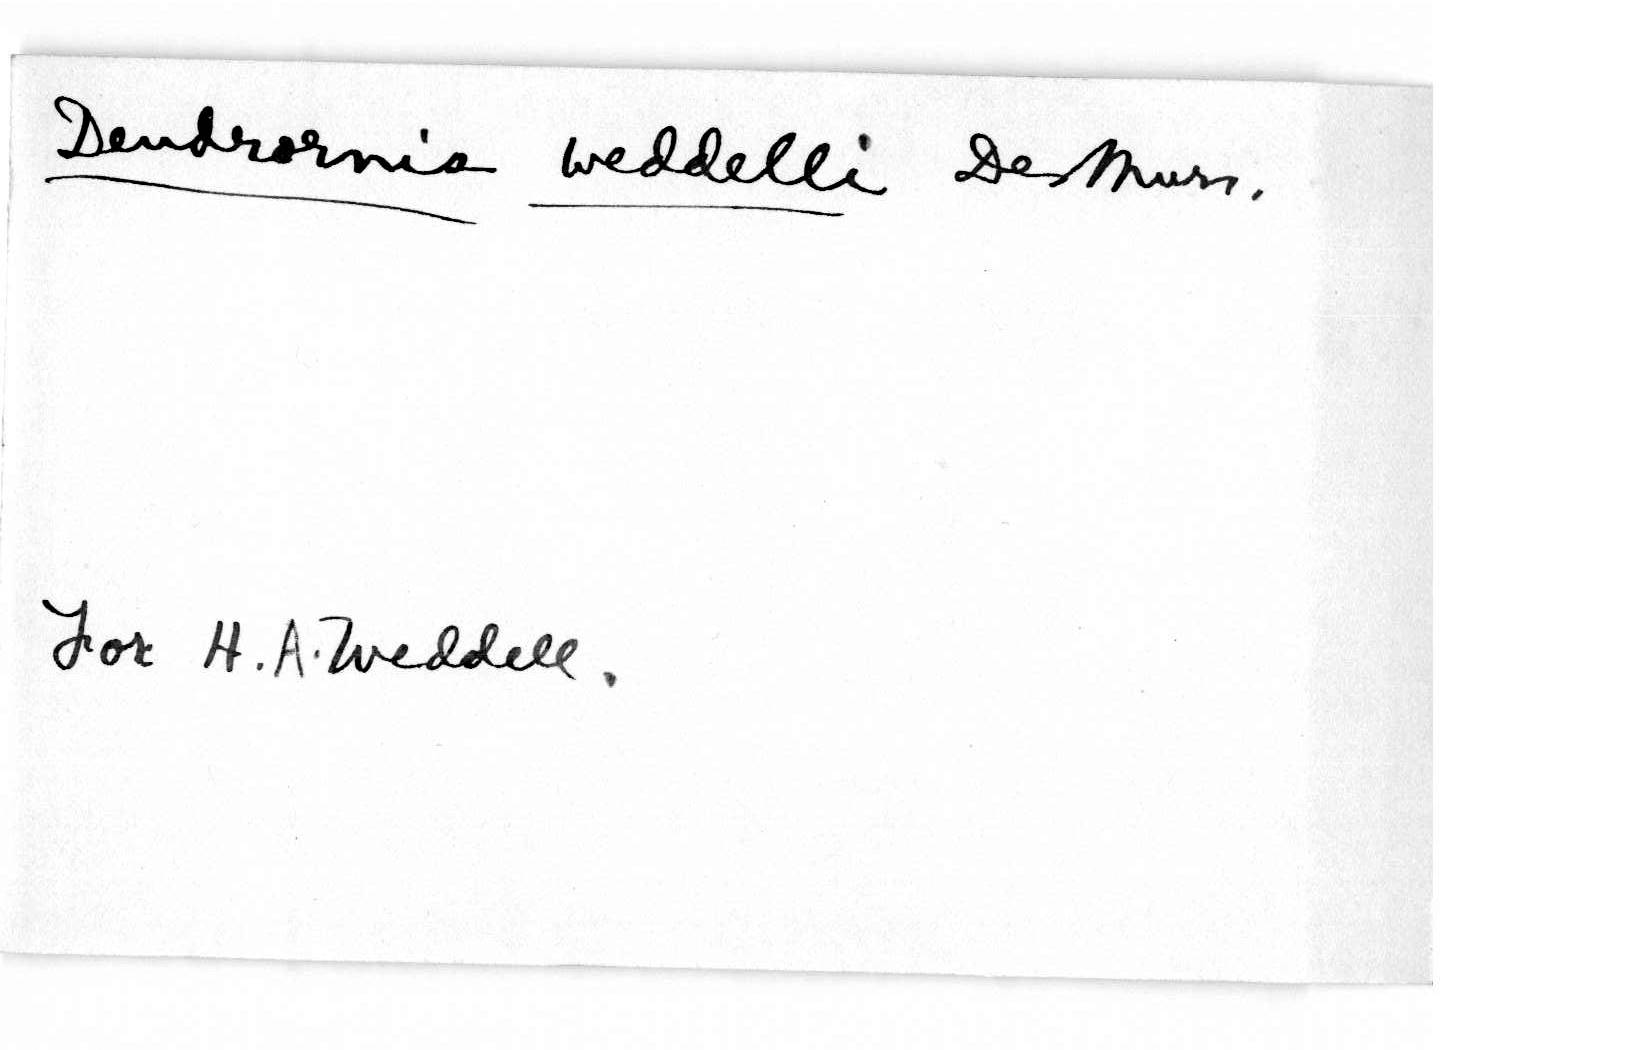 Dendrornis weddelli Des Murs.
For H. A. Weddell.